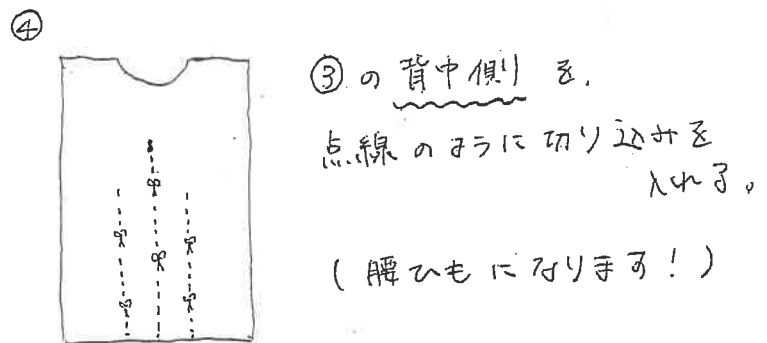 ④
③の背中側を、
点線のように切り込みを
入れる。
(腰ひもになります!)